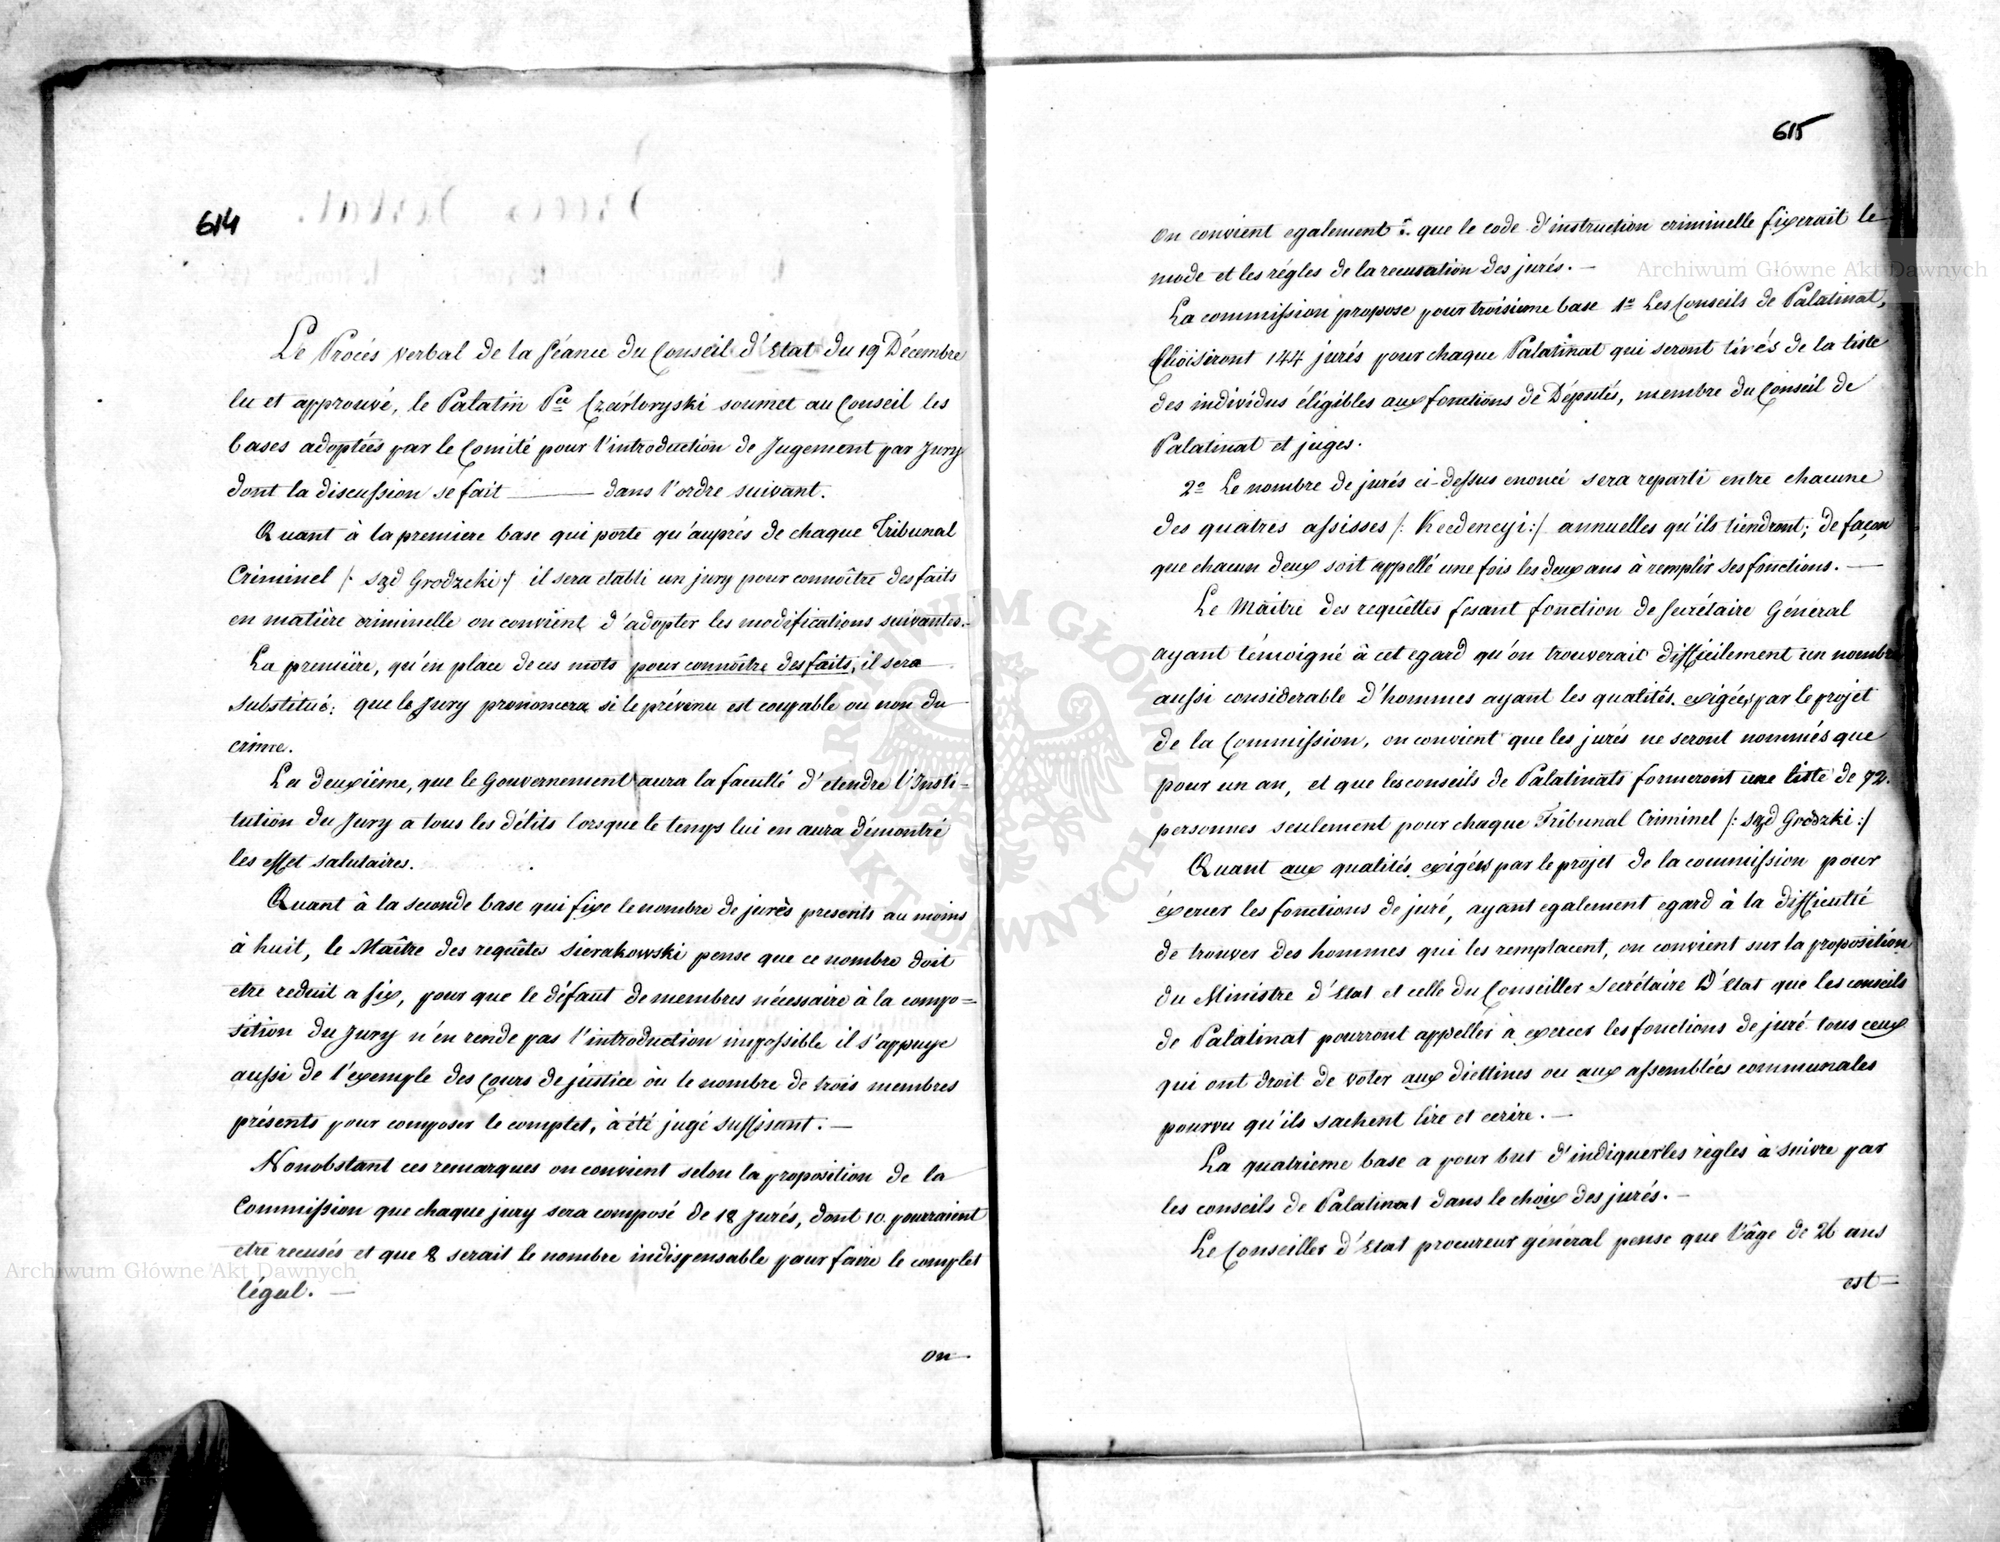 614
Le Procés verbal de la Séance du Conseil d'Etat du 19 Décembre
lu et approuvé, le Palatin Pce Czartoryski soumet au Conseil les
bases adoptées par le Comité pour l'introduction de Jugement par Jury
dont la discussion se fait ——— dans l'ordre suivant.
Quant à la premiere base qui porte qu'auprés de chaque Tribunal
Criminel /: sąd Grodzcki :/ il sera etabli un jury pour connoître des faits
en matière criminelle on convient d'adopter les modifications suivantes.-
La première, qu'en place de ces mots pour connoître des faits, il sera
substitué: que le Jury prononcera si le prévenu est coupable ou non du
crime.
La deuxième, que le Gouvernement aura la faculté d'etendre l'Insti=
tution du Jury a tous les délits lorsque le temps lui en aura démontré
les effet salutaires.
Quant à la seconde base qui fixe le nombre de jurés presents au moins
à huit, le Maître des requêtes Sierakowski pense que ce nombre doit
etre reduit a six, pour que le défaut de membres nécessaire à la compo=
sition du Jury n'en rende pas l'introduction impossible il s'appuye
aussi de l'exemple des Cours de justice où le nombre de trois membres
présents pour composer le complet, à été jugé suffisant. —
Nonobstant ces remarques on convient selon la proposition de la
Commission que chaque jury sera composé de 18 Jurés, dont 10 pourraient
etre recusés et que 8 serait le nombre indispensable pour faire le complet
légal. —
on-
615
On convient egalement que le code d'instruction criminelle fixerait le
mode et les régles de la recusation des jurés. —
La commission propose pour troisieme base 1o Les Conseils de Palatinat,
Choisiront 144 jurés pour chaque Palatinat qui seront tirés de la liste
des individus éligibles aux fonctions de Députés, membre du Conseil de
Palatinat et juges.
2o Le nombre de jurés ci-dessus enoncé sera reparti entre chacune
des quatres assisses /: Kcedencyi :/ annuelles qu'ils tiendront; de façon
que chacun deux soit appellé une fois les deux ans à remplir ses fonctions. —
Le Maître des requêttes fesant fonction de Secrétaire Général
ayant témoigné à cet egard qu'on trouverait difficilement un nombre
aussi considerable d'hommes ayant les qualités exigées par le projet
de la Commission, on convient que les jurés ne seront nommés que
pour un an, et que les conseils de Palatinats formeront une liste de 72.
personnes seulement pour chaque Tribunal Criminel /: sąd Grodzki :/
Quant aux qualités exigées par le projet de la commission pour
éxercer les fonctions de juré, ayant egalement egard à la difficulté
de trouver des hommes qui les remplacent, on convient sur la proposition
du Ministre d'Etat et celle du Conseiller Secrétaire D'Etat que les conseils
de Palatinat pourront appeller à exercer les fonctions de juré tous ceux
qui ont droit de voter aux diettines ou aux assemblées communales
pourvu qu'ils sachent lire et ecrire. —
La quatrieme base a pour but d'indiquer les règles à suivre par
les conseils de Palatinat dans le choix des jurés. —
Le Conseiller d'Etat procureur général pense que l'âge de 26 ans
est—
Archiwum Główne Akt Dawnych
Archiwum Główne Akt Dawnych
ARCHIWUM GŁÓWNE AKT DAWNYCH